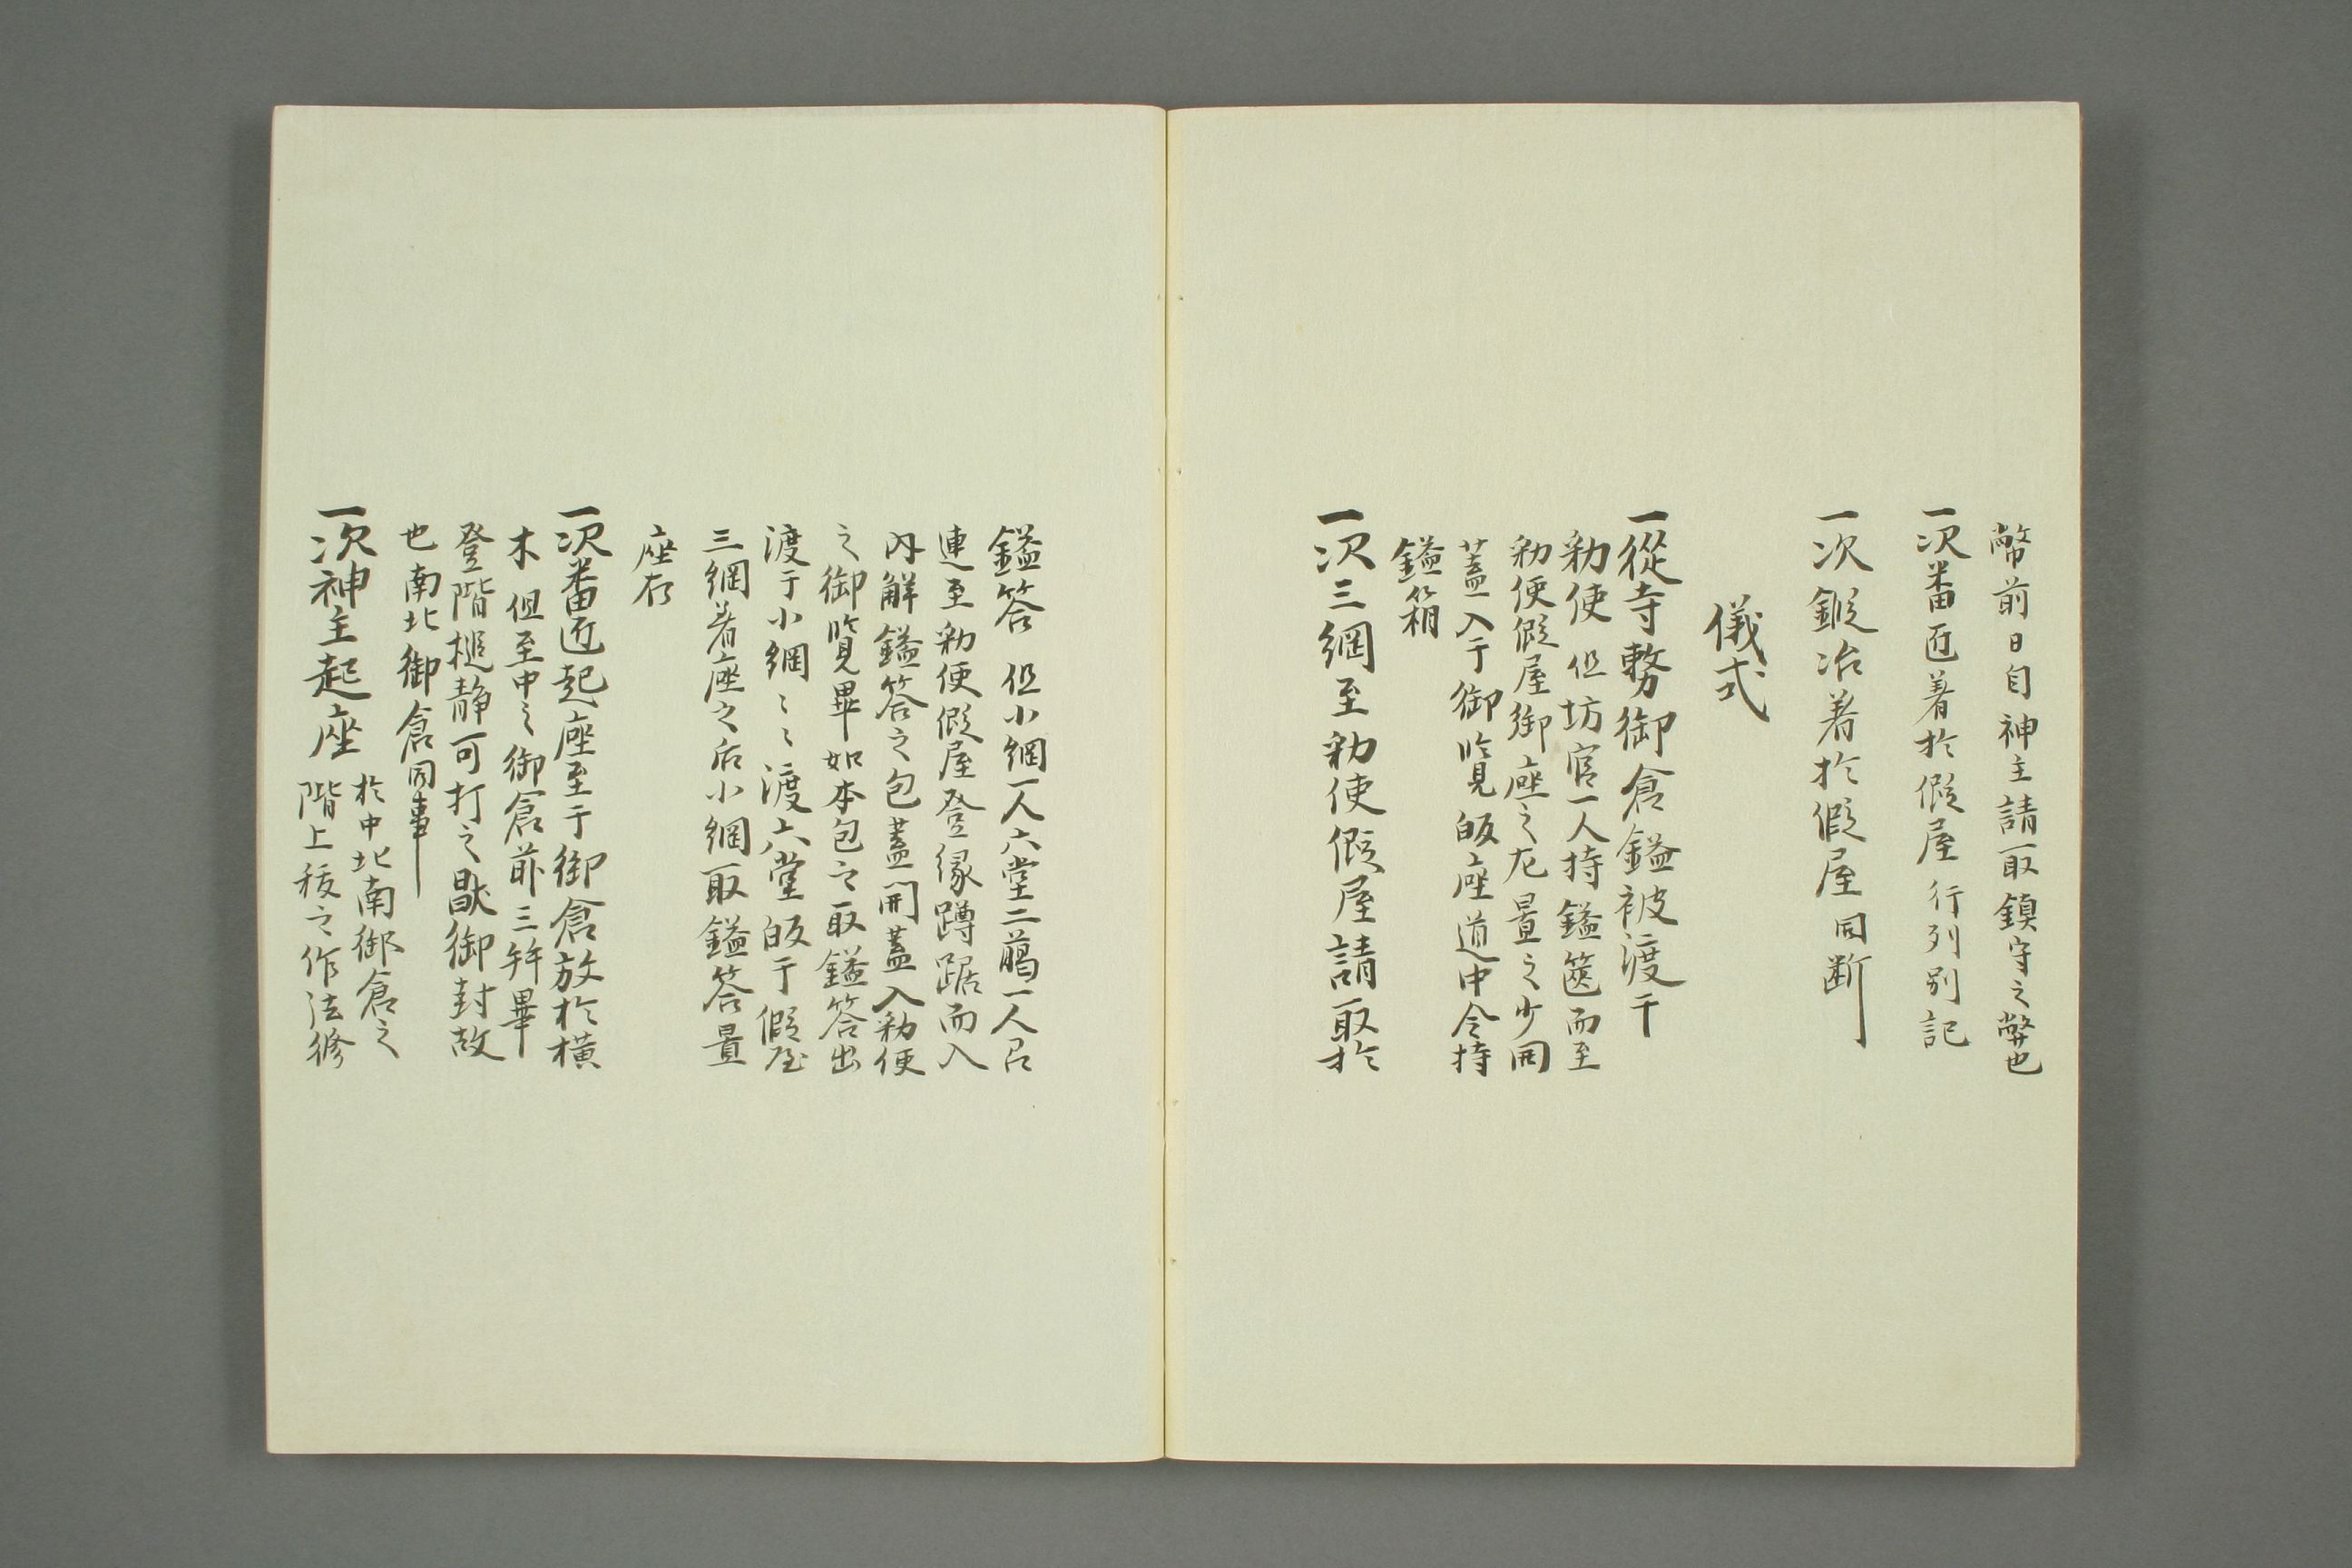 幣前日自神主請取鎮守之幣也
一次番匠著於假屋 行列別記
一次鍛冶著於假屋 同断
儀式
一從寺務御倉鎰被渡于
勅使 但坊官一人持鎰篋而至
勅使假屋御座之左置之少開
蓋入于御覧皈座道中令持
鎰箱
一次三綱至勅使假屋請取於
鎰答 但小綱一人六堂二﨟一人召
連至勅使假屋登縁蹲踞而入
内解鎰答之包蓋開蓋入勅使
之御覧畢如本包之取鎰答出
渡于小綱〻〻渡六堂皈于假屋
三綱著座之后小綱取鎰答置
座右
一次番匠起座至于御倉放於横
木 但至中之御倉前三拝畢
登階槌静可打之歇御封故
也南北御倉同事
一次神主起座 於中北南御倉之
階上秡之作法修